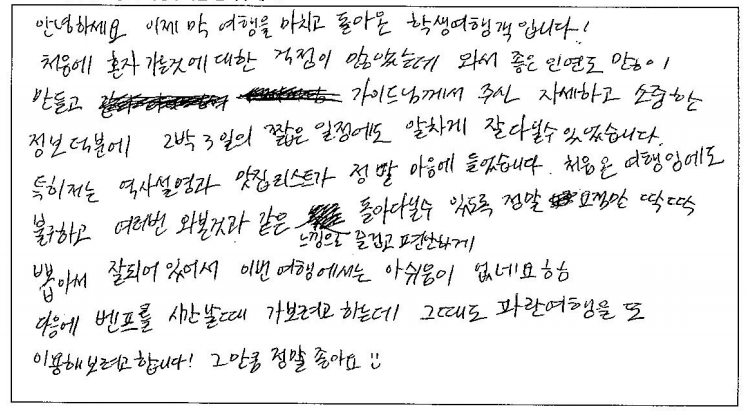 안녕하세요 이제 막 여행을 마치고 돌아온 학생여행객입니다!
처음에 혼자 가는것에 대한 걱정이 많았었는데 와서 좋은 인연도 많이
만들고 가이드님께서 주신 자세하고 소중한
정보덕분에 2박3일의 짧은 일정에도 알차게 잘다닐수있었습니다.
특히저는 역사설명과 맛집리스트가 정말 마음에 들었습니다. 처음온 여행임에도
불구하고 여러번 와본것과 같은 느낌으로 즐겁고 편안하게 돌아다닐수 있도록 정말 요점만 딱딱
뽑아서 잘되어 있어서 이번 여행에서는 아쉬움이 없네요 흐흐
다음에 벤프를 시간날때 가보려고 하는데 그때도 파란여행을 또
이용해보려고합니다! 그만큼 정말 좋아요